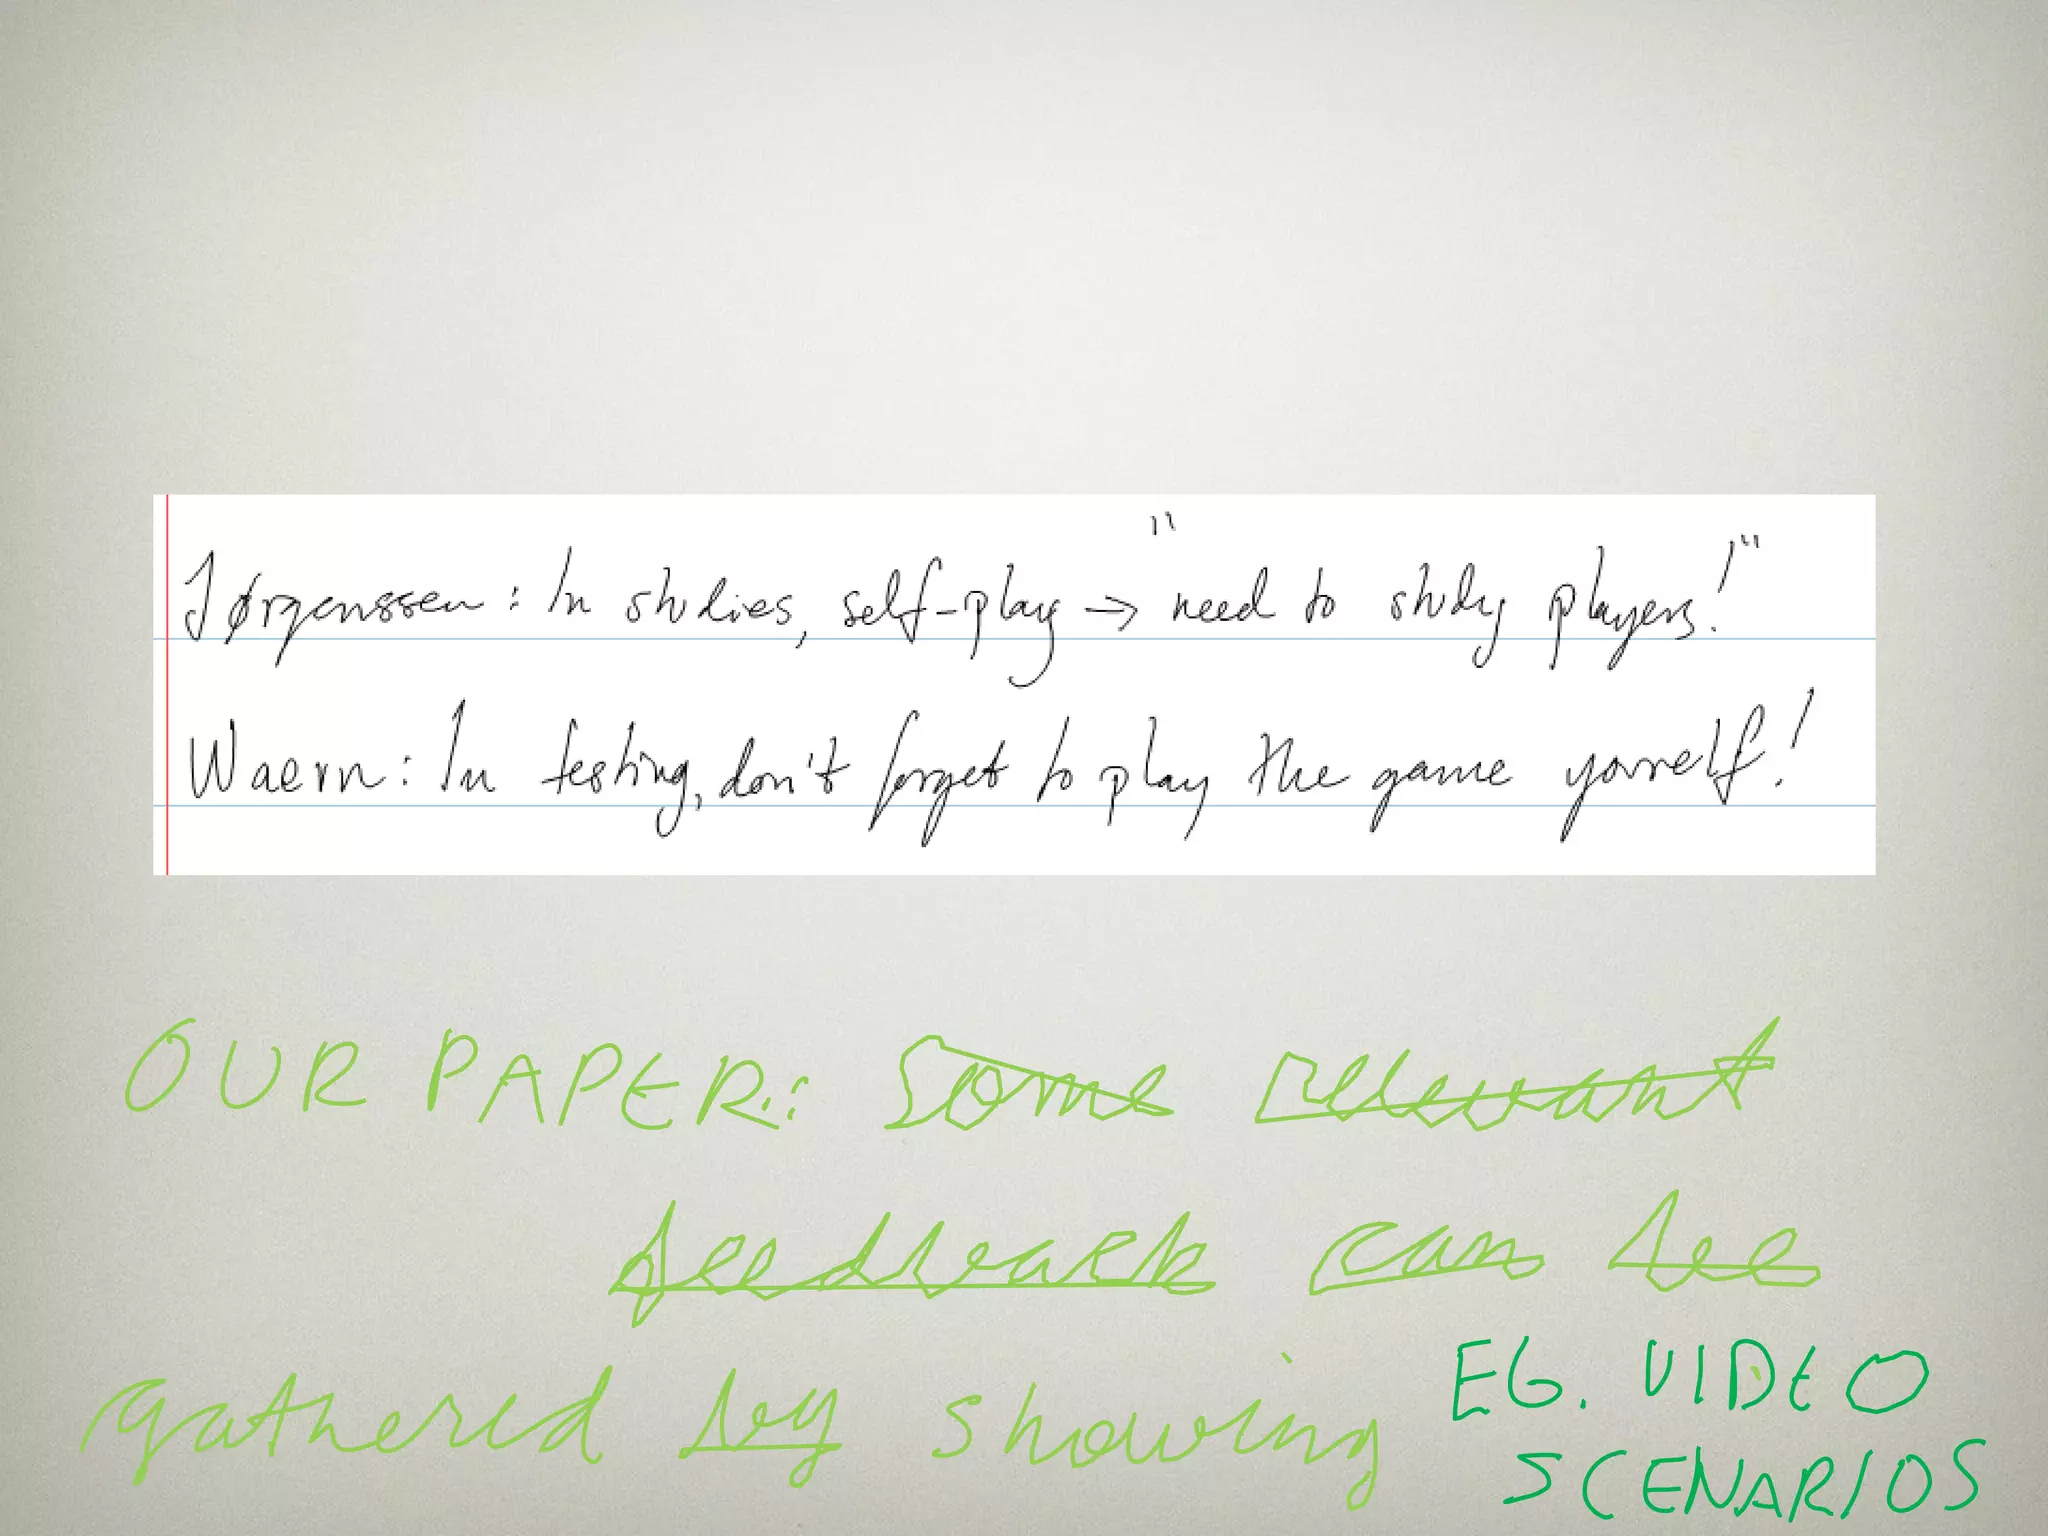 Jørgenssen: In studies, self-play → "need to study players!"
Waern: In testing, don't forget to play the game yourself!
OUR PAPER: Some relevant
feedback can be
gathered by showing
EG. VIDEO
SCENARIOS